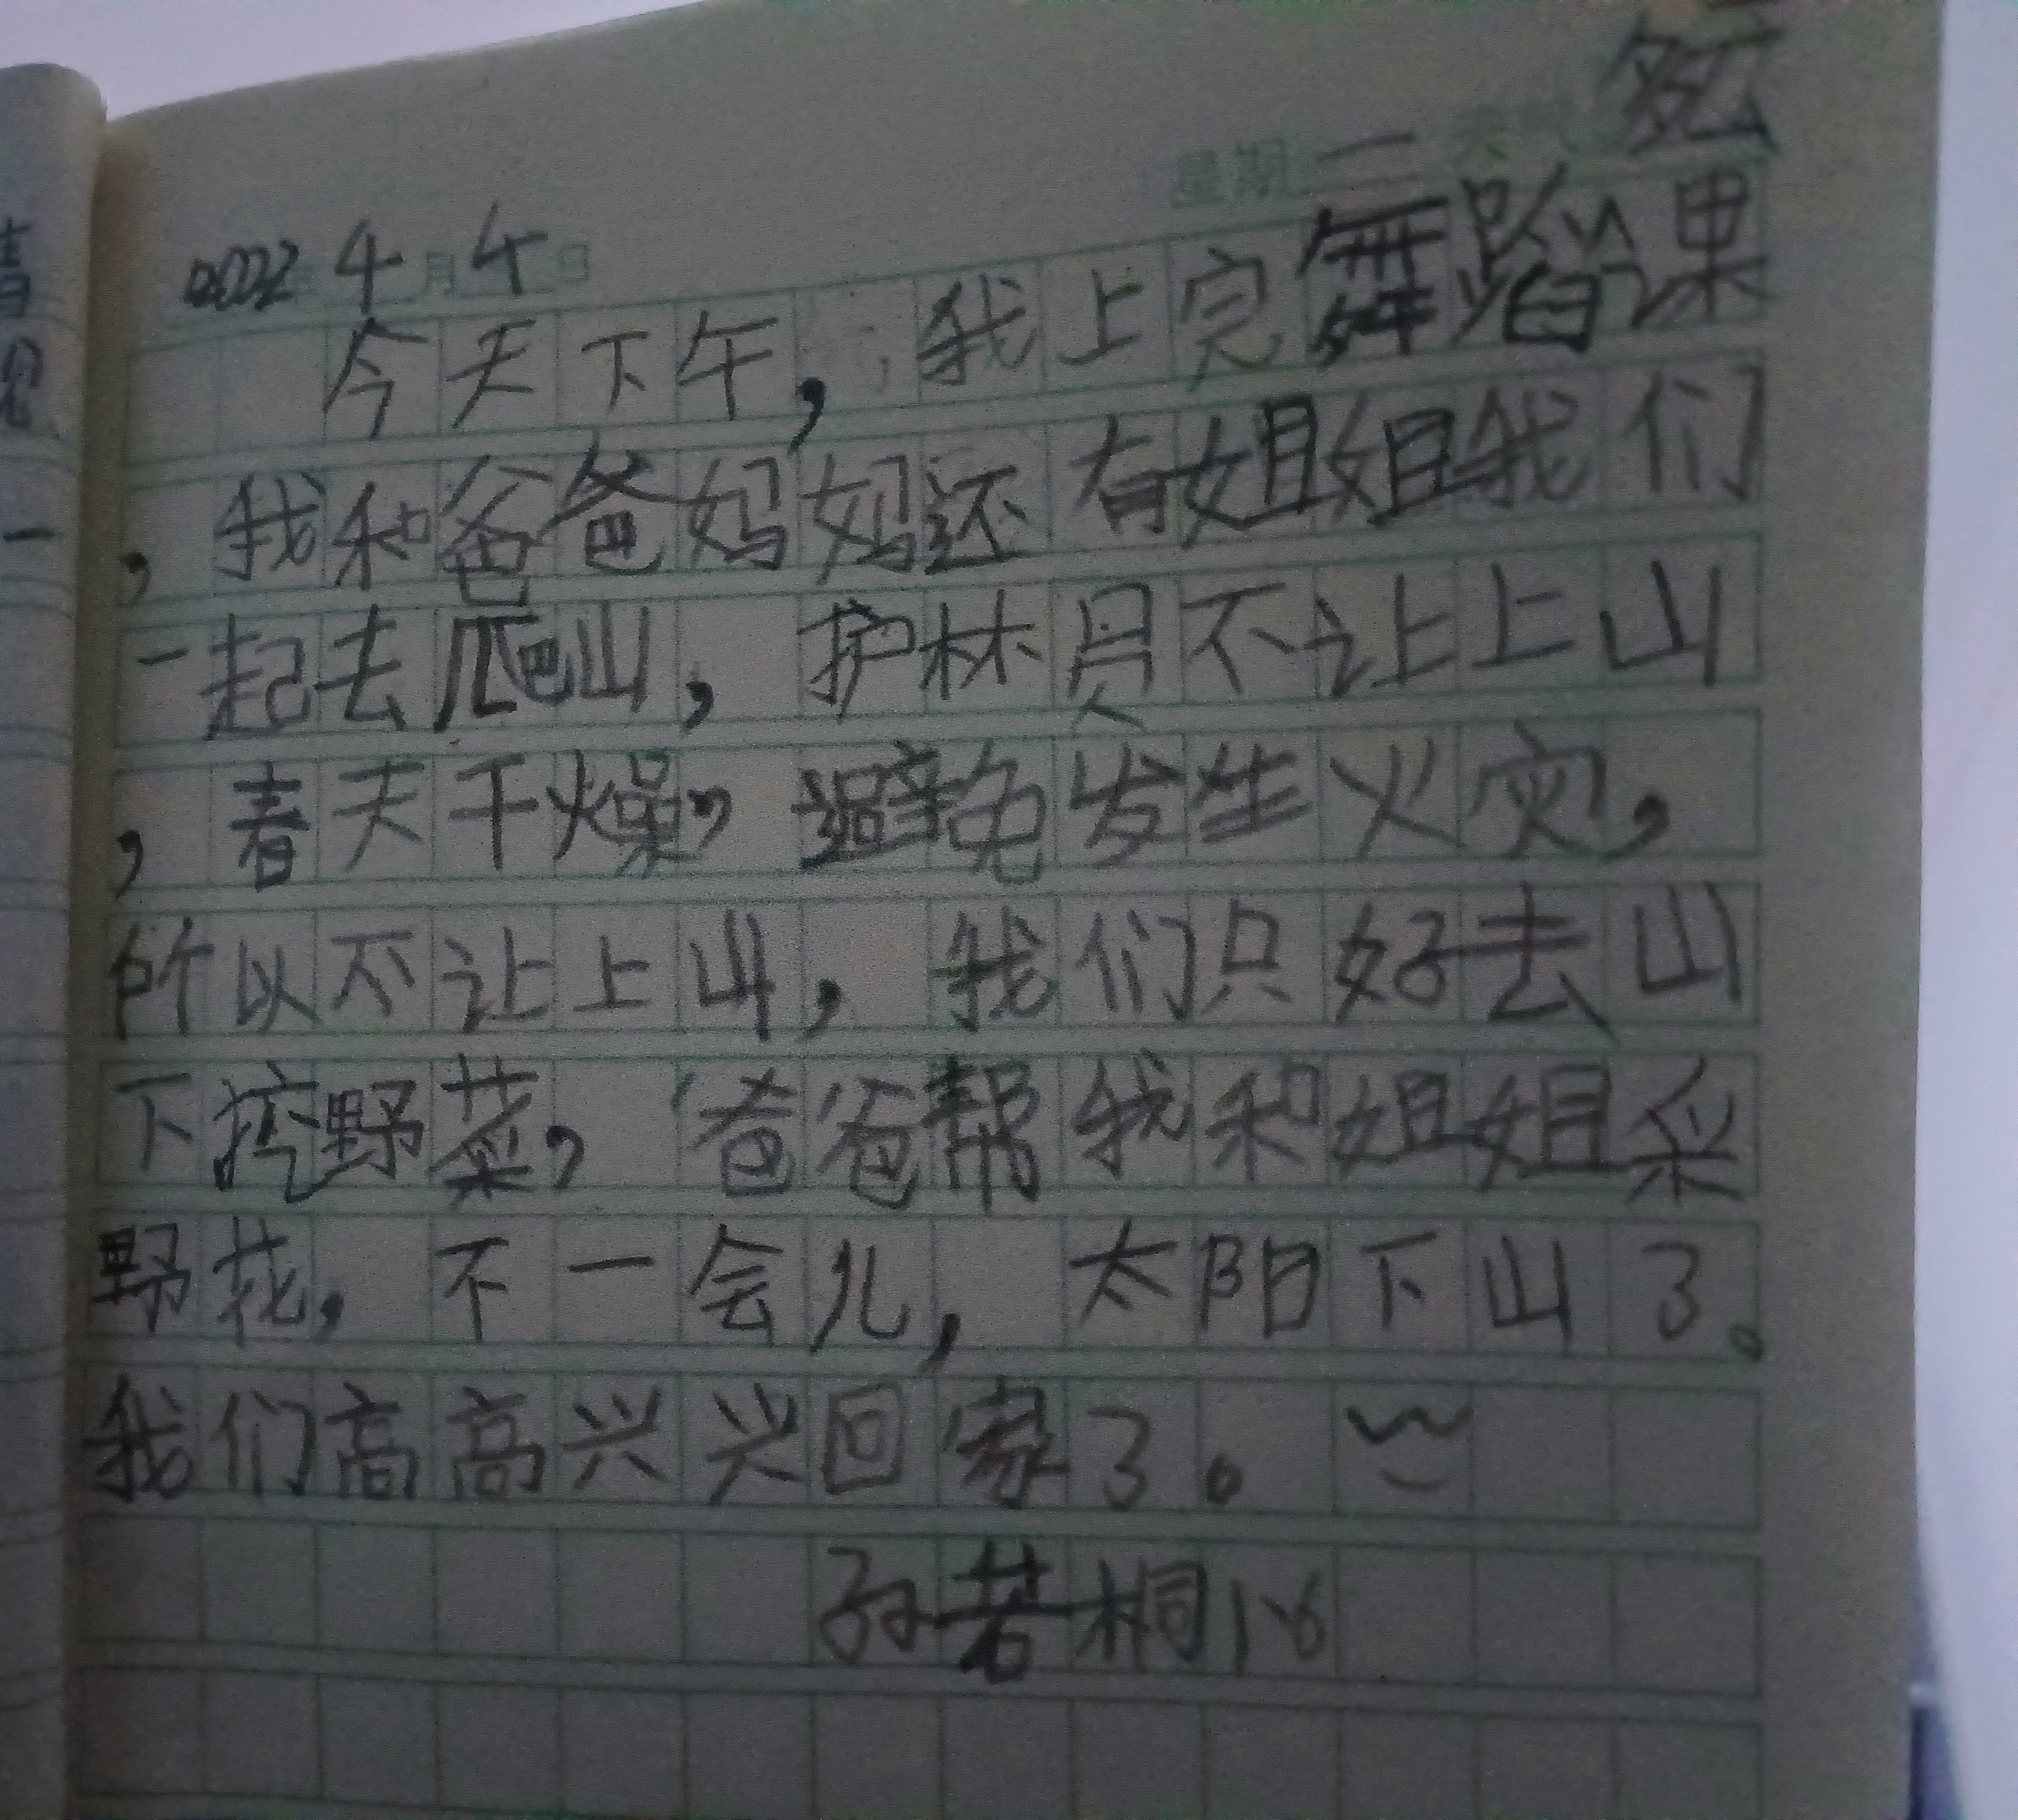 星期二 天气 多云
2022年4月4日
今天下午，我上完舞蹈课
，我和爸爸妈妈还有姐姐我们
一起去爬山，护林员不让上山
，春天干燥，避免发生火灾，
所以不让上山，我们只好去山
下挖野菜，爸爸帮我和姐姐采
野花，不一会儿，太阳下山了。
我们高高兴兴回家了。
孙若桐1.6